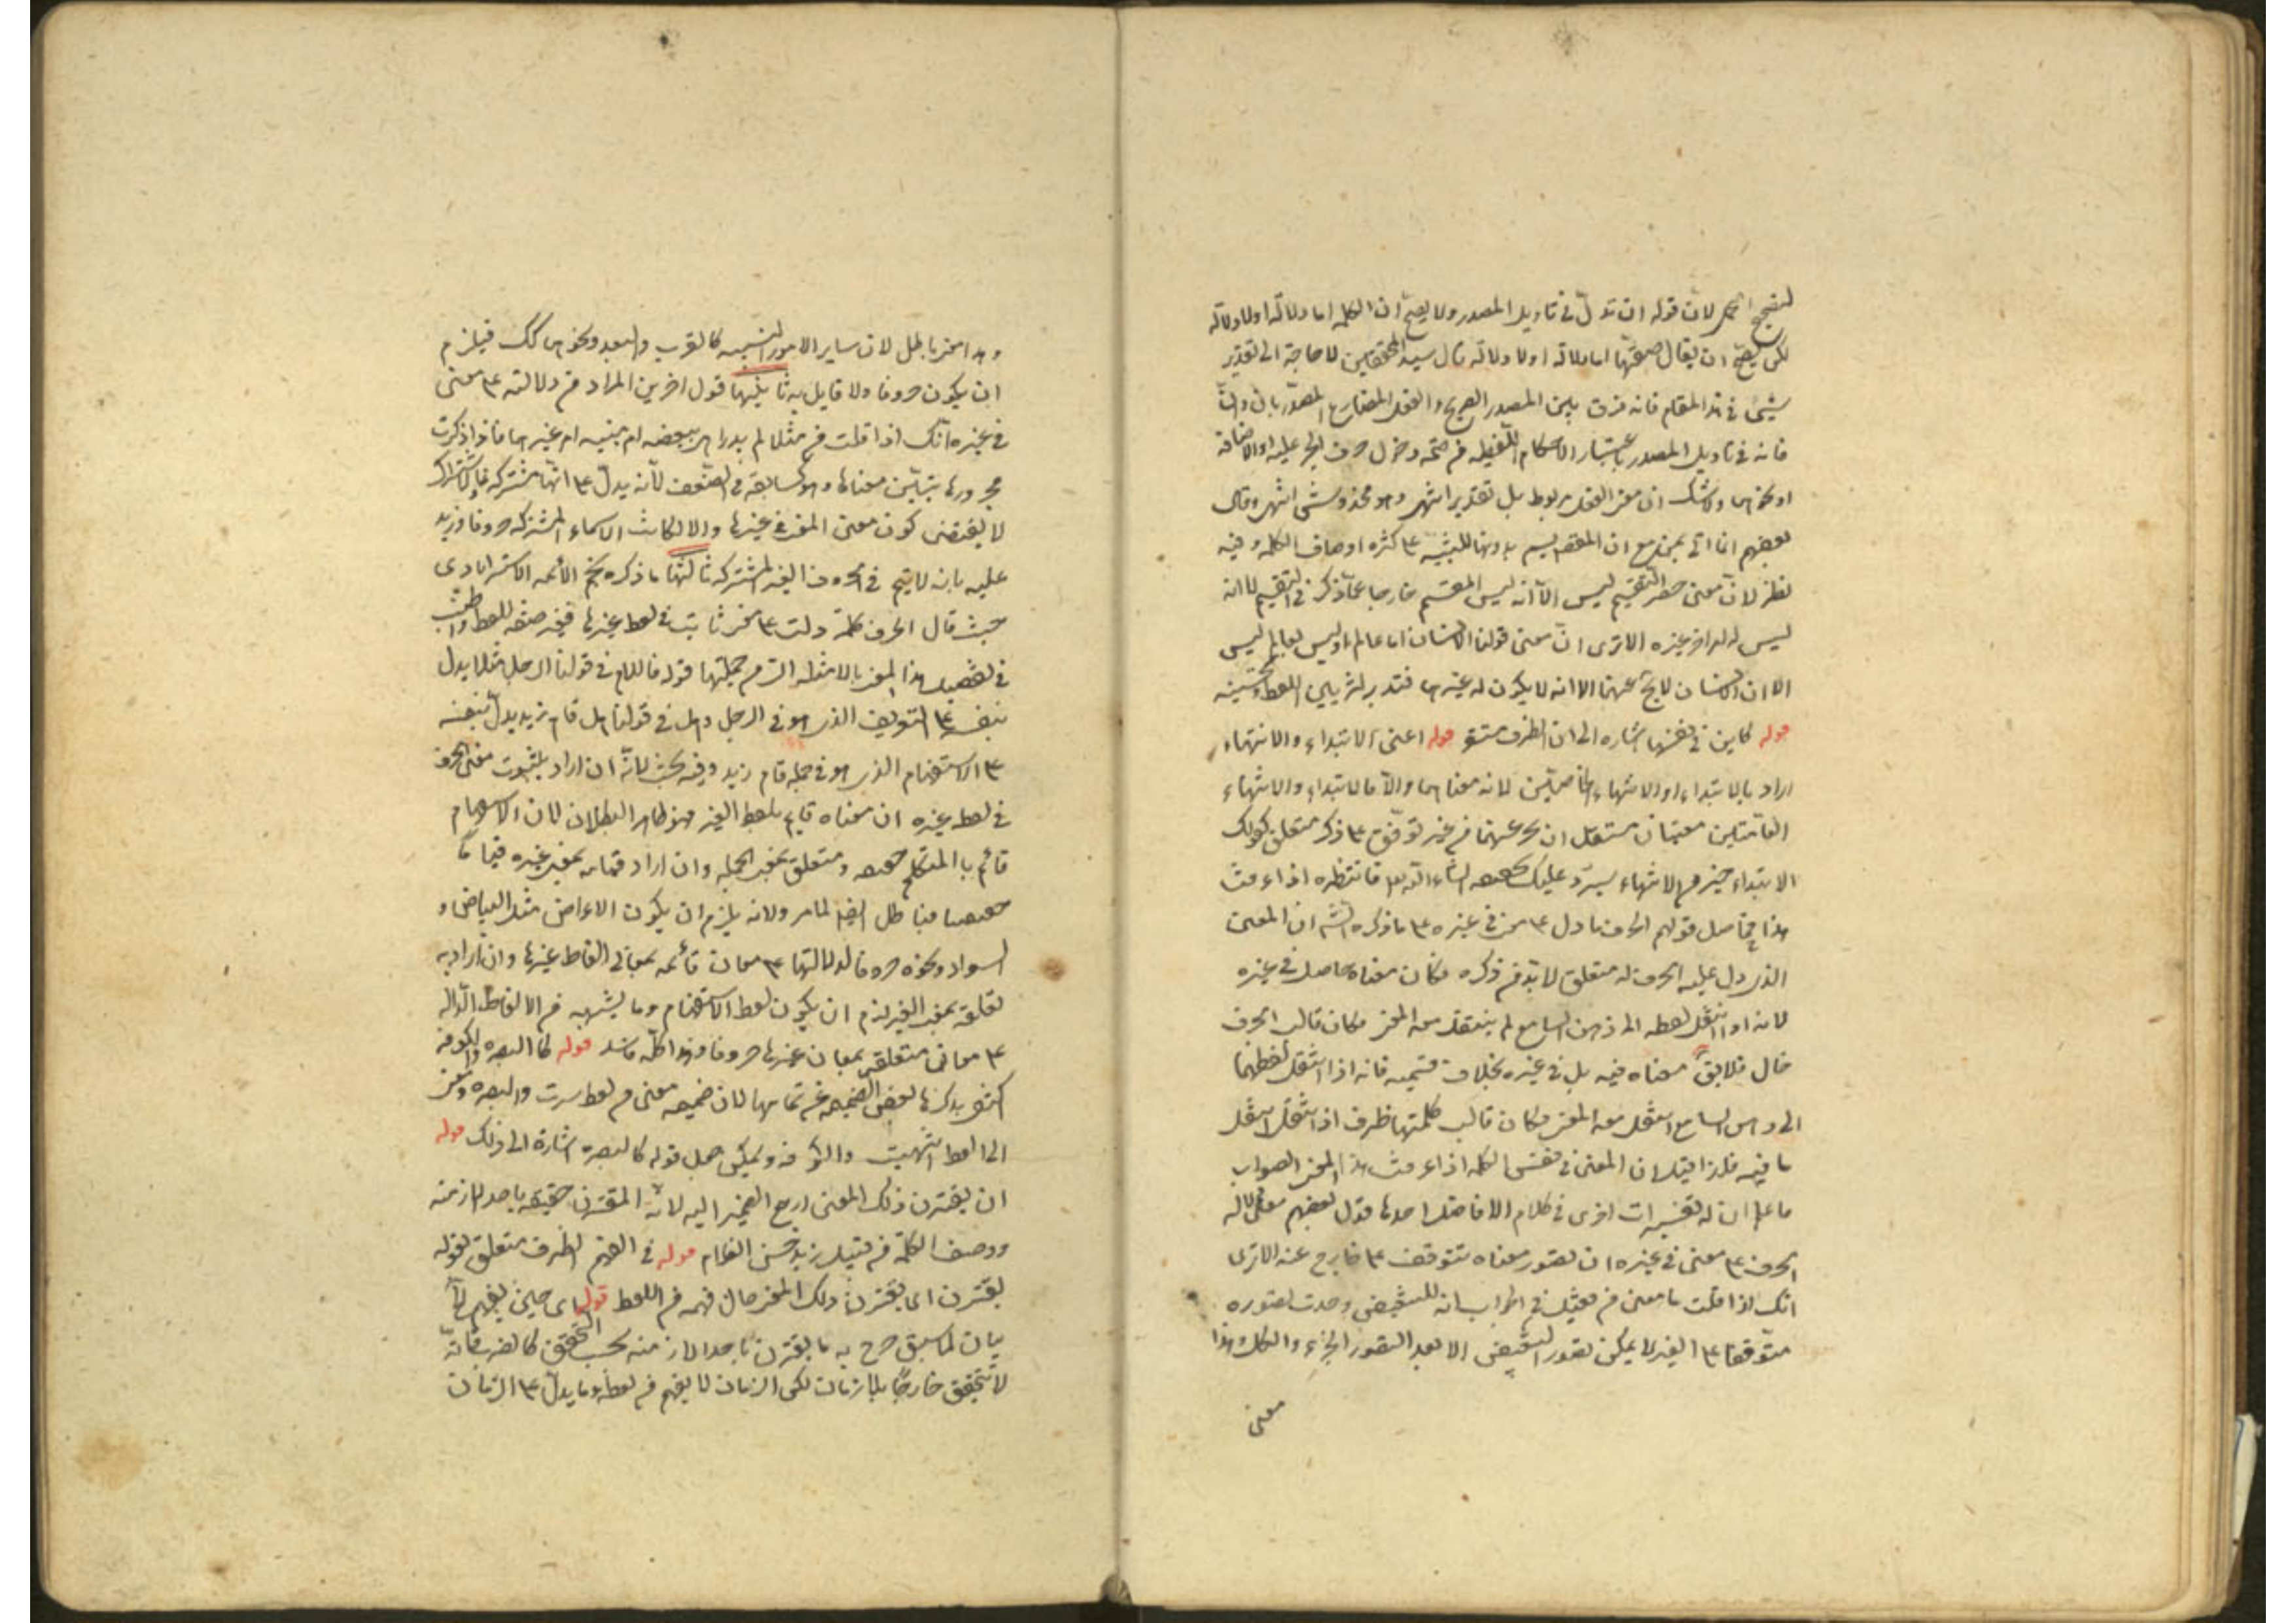 لتصحيح الحمل لان قوله ان تدل في تاويل المصدر ولا يصح ان الكلمه اما دلالة او لا دلالة
لكن يصح ان يقال صفتها اما دلالة او لا دلالة قال سيد المحققين لا حاجة الى تقدير
شيئ في هذا المقام فانه فرق بين المصدر الصريح والفعل المضارع المصدر بان وان
فانه في تاويل المصدر باعتبار الاحكام اللفظيه من صحة دخول حرف الجر عليه او الاضافة
او نحوها ولا شك ان الفعل مربوط بل تقدير
بعضهم انما اتى مع ان المقسم للتنبيه ع كثره اوصاف الكلمه وفيه
نظر لان معنى حصر التقسيم ليس الا انه ليس المقسم خارجا عما ذكر في التقسيم لا انه
ليس له امر غيره الا ترى ان معنى قولنا الانسان اما عالم او ليس بعالم ليس
الا ان الانسان لا يخ عنهما لا انه لا يكون له غيرها فتدبر اللفظ
قوله كاين في نفسها اشاره الى ان الظرف مستقر قوله اعنى الابتداء والانتهاء
اراد بالابتداء او الانتهاء الخاصين لانه معناها والا فالابتداء والانتهاء
معنيان مستقل ان من غير توقف ع ذكر متعلق كقولك
الابتداء خير من الانتهاء سيرد عليك تحقيقه ان شاء الله تع فانتظره اذا عرفت
هذا فحاصل قولهم الحرف ما دل ع معنى في غيره ع ما ذكره الش ان المعنى
الذى دل عليه الحرف له متعلق لا بد من ذكره فكان معناه حاصل في غيره
لانه اذا انتقل لفظه الى ذهن السامع لم ينتقل معه المعنى فكان قالب الحرف
خال فلا يق معناه فيه بل في غيره بخلاف قسميه فانه اذا انتقل لفظهما
الى ذهن السامع انتقل معه المعنى فكان قالب كلمتها ظرف اذا انتقل انتقل
ما فيه فلذا قيل ان المعنى في نفس الكلمه اذا عرفت هذا المعنى الصواب
فاعلم ان له تفسيرات اخرى في كلام الافاضل احدها قول بعضهم معنى دلالة
الحرف ع معنى في غيره ان تصور معناه متوقف ع خارج عنه الا ترى
انك اذا قلت ما معنى من فقيل في الجواب انه للتبعيض وجدت تصوره
متوقفا ع الغير لا يمكن تصور التبعيض الا بعد التصور الجزء والكل وهذا
معنى
وهذا معنى باطل لان ساير الامور النسبيه كالقرب والبعد ونحوها كك فيلزم
ان يكون حروفا ولا قايل به ثانيها قول اخرين المراد من دلالته ع معنى
في غيره انك اذا قلت من مثلا لم يدر اهى تبعضيه ام تبينيه ام غيرها فاذا ذكرت
مجرورها يتبين معناها وهو كسابقه في الضعف لانه يدل ع انها مشتركه فالاشتراك
لا يقتضى كون معنى المعنى في غيرها والا لكانت الاسماء المشتركه حروفا وزيد
عليه بانه لا يتم في الحروف الغير المشتركه ثالثها ما ذكره نجم الائمه الاسترابادى
حيث قال الحرف كلمة دلت ع معنى ثابت في لفظ غيرها فغير صفه للفظ واطنب
في تفصيل هذا المعنى بالامثله التى من جملتها قوله فاللام في قولنا الرجل مثلا يدل
بنفسه ع التعريف الذى هو في الرجل وهل في قولنا هل قام زيد يدل بنفسه
ع الاستفهام الذى هو في جمله قام زيد وفيه بحث لانه ان اراد بثبوت معنى الحرف
في لفظ غيره ان معناه قايم بلفظ الغير فهو ظاهر البطلان لان الاستفهام
قائم بالمتكلم حقيقه ومتعلق بمعنى الجمله وان اراد قيامه بمعنى غيره قياما
حقيقيا فباطل ايضا لما مر ولانه يلزم ان يكون الاعراض مثل البياض و
السواد ونحوه حروفا لدلالتها ع معان قائمه بمعانى الفاظ غيرها وان اراد به
تعلقه بمعنى الغير لزم ان يكون لفظ الاستفهام وما يشبهه من الالفاظ الداله
ع معانى متعلقه بمعان غيرها حروفا وهذا كله فاسد قوله كالبصره والكوفه
اكتفى بذكرها لان معنى من لفظ سرت والبصره ومن
الى لفظ انتهيت والكوفه ويمكن حمل قوله كالبصره اشارة الى ذلك قوله
ان يقترن ذلك المعنى ارجع الضمير اليه لانه المقترن حقيقه باحد الازمنه
ووصف الكلمة من قبيل زيد حسن الغلام قوله في الفهم الظرف متعلق بقوله
يقترن اى يقترن ذلك المعنى حال فهمه من اللفظ قوله اى حين يفهم
بيان لما سبق صرح به ما يقترن باحد الازمنه بحسب التحقق كالضرب فانه
لا يتحقق خارجا بلا زمان لكن الزمان لا يفهم من لفظه وما يدل ع الزمان